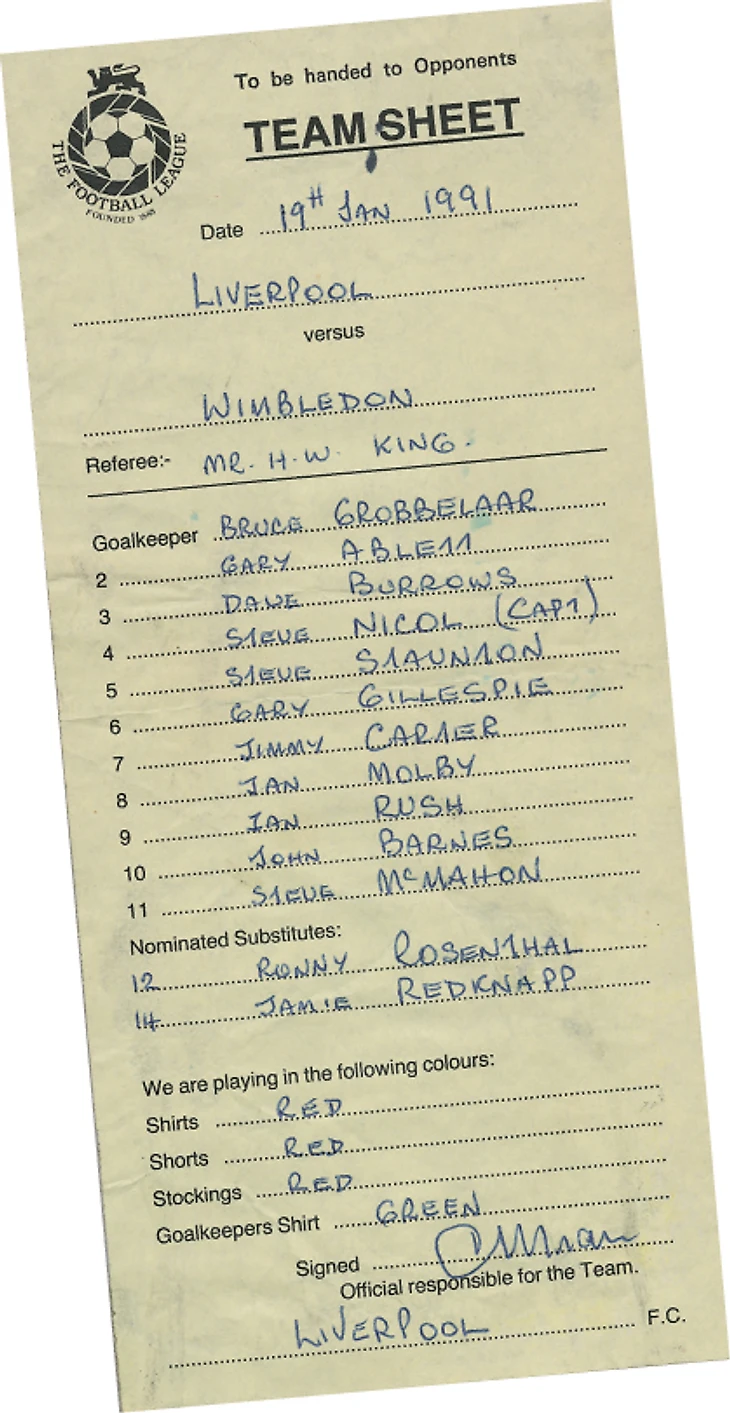 To be handed to Opponents
TEAM SHEET
THE FOOTBALL LEAGUE
FOUNDED 1888
Date 19TH JAN 1991
LIVERPOOL
versus
WIMBLEDON
Referee:- MR. H.W. KING.
Goalkeeper BRUCE GROBBELAAR
2 GARY ABLETT
3 DAVE BURROWS
4 STEVE NICOL (CAPT)
5 STEVE STAUNTON
6 GARY GILLESPIE
7 JIMMY CARTER
8 JAN MOLBY
9 IAN RUSH
10 JOHN BARNES
11 STEVE McMAHON
Nominated Substitutes:
12 RONNY ROSENTHAL
14 JAMIE REDKNAPP
We are playing in the following colours:
Shirts RED
Shorts RED
Stockings RED
Goalkeepers Shirt GREEN
Signed
Official responsible for the Team.
LIVERPOOL F.C.